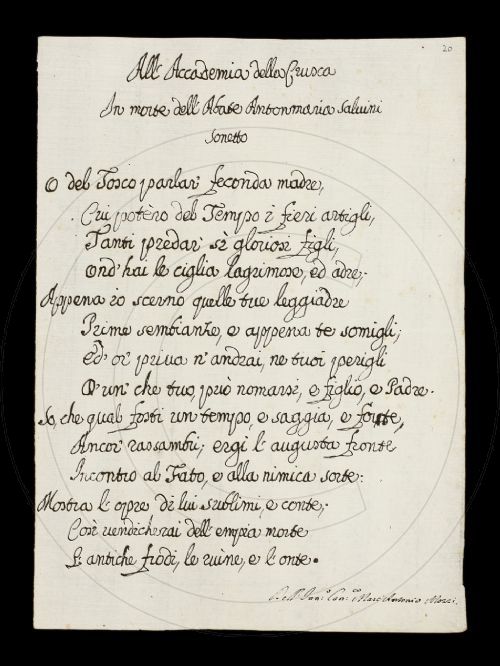 20
All' Accademia della Crusca
In morte dell' Abate Antonmaria Salvini
Sonetto
O del Tosco parlar feconda madre,
Cui potèro del Tempo i fieri artigli,
Tanti predar sì gloriosi figli,
Ond' hai le ciglia lagrimose, ed adre;
Appena io scerno quelle tue leggiadre
Prime sembianze, e appena te somigli;
Ed' or' priva n' andrai, ne tuoi perigli
D' un' che tuo può nomarsi, e figlio, e Padre.
So, che qual fosti un tempo, e saggia, e forte,
Ancor' rassembri; ergi l' augusta fronte
Incontro al Fato, e alla nimica sorte:
Mostra l' opre di lui sublimi, e conte;
Così vendicherai dell' empia morte
L' antiche frodi, le ruine, e l' onte.
Dell' Can. Marc' Antonio